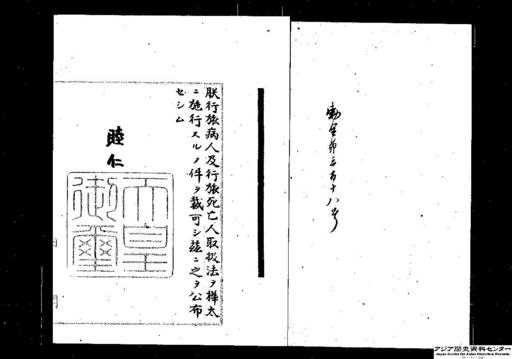 勅令第三百十八号
朕行旅病人及行旅死亡人取扱法ヲ樺太
ニ施行スルノ件ヲ裁可シ茲ニ之ヲ公布
セシム
睦仁
天皇
御璽
アジア歴史資料センター
Japan Center for Asian Historical Records